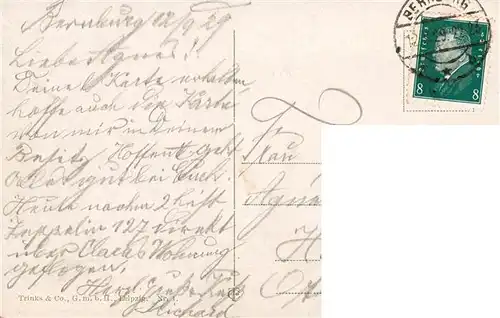 Bernburg 12/9 29
Liebe Agnes!
Deine Karte erhalten
hoffe auch die Karte
von mir in Deinem
Besitz. Hoffent. geht
alles gut bei Euch.
Heute nachm 2 h ist
Zeppelin 127 direkt
über Claras Wohnung
geflogen.
Herzl. Gruß
Richard
Trinks & Co., G. m. b. H., Leipzig. Nr. 1.
BERNBURG
8 8
Frau
Agn